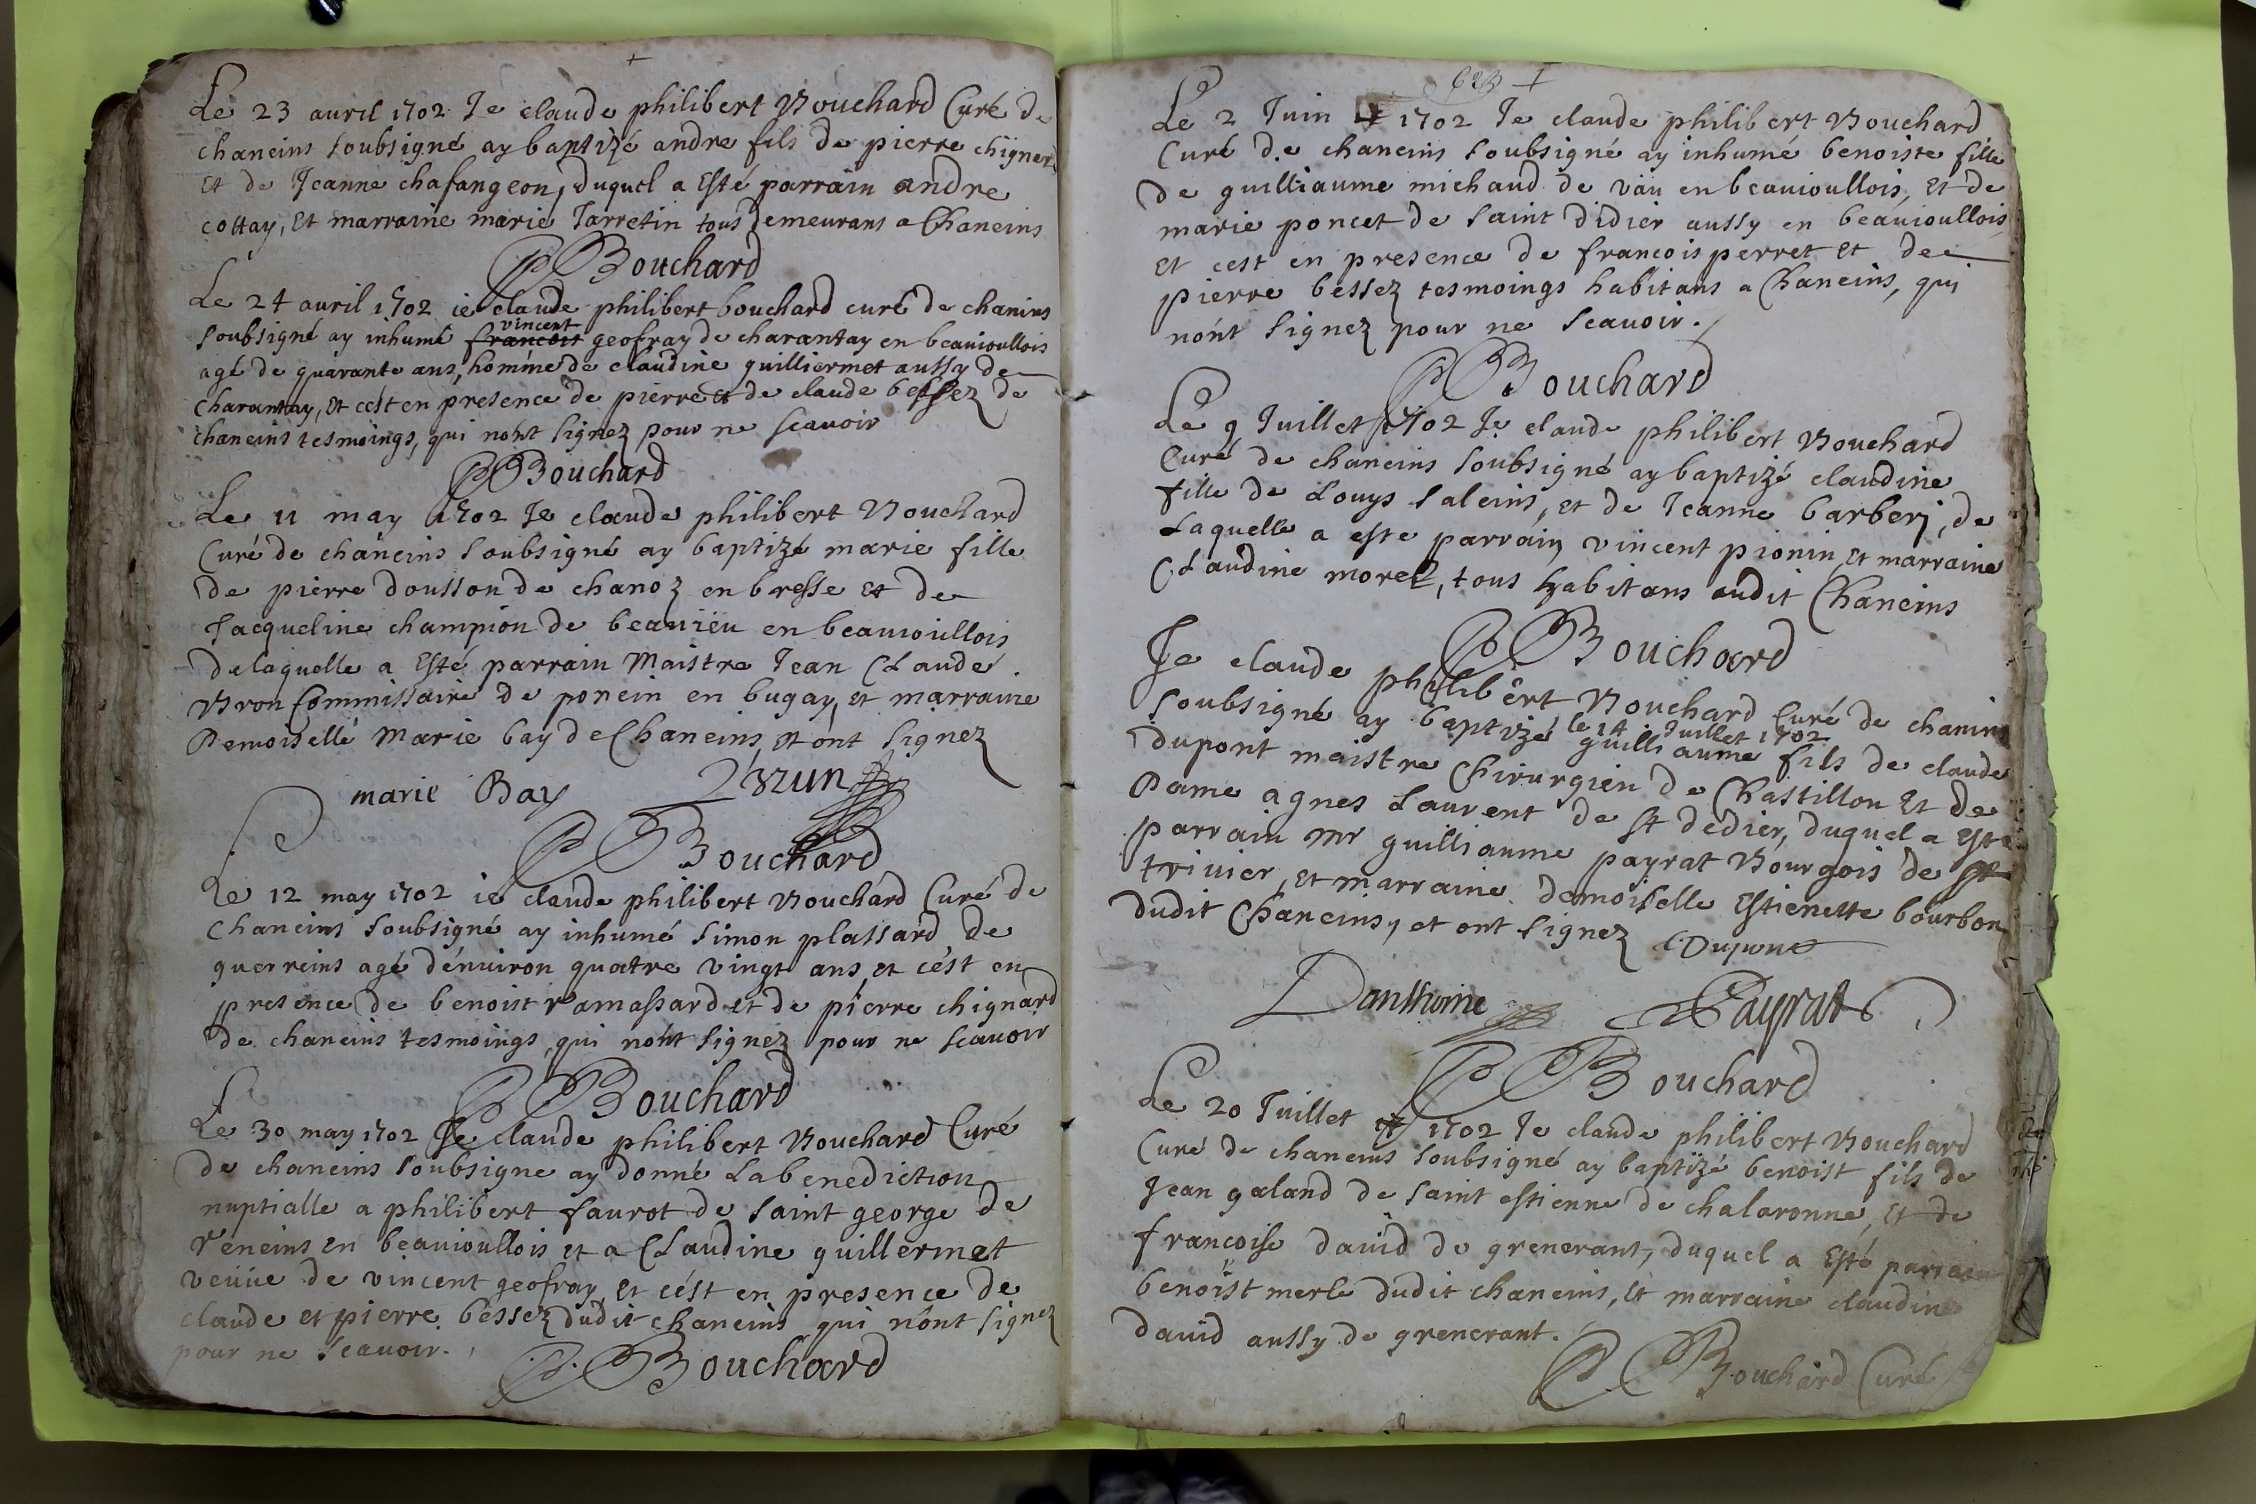 Le 23 auril 1702 Je claude philibert Bouchard Curé de
chaneins soubsigné ay baptizé andre fils de pierre chigner
et de Jeanne chafangeon, duquel a Esté parrain andre
cottay, Et marraine marie Jarretin tous demeurans a Chaneins
Bouchard
Le 24 auril 1702 ie claude philibert bouchard curé de chanins
vincent
soubsigné ay inhumé francois geofray de charantay en beauioullois
agé de quarante ans, homme de claudine guilliermet aussy de
Charantay, Et cést en presence de pierre et de claude bessez de
chaneins tesmoings, qui nont signez pour ne scauoir
Bouchard
Le 11 may 1702 Je claude philibert Bouchard
Curé de chaneins soubsigné ay baptizé marie fille
de pierre dousson de chanoz en bresse et de
Jacqueline champion de beauieu en beauioullois
delaquelle a Esté parrain Maistre Jean Claude
Bron Commissaire de poncin en bugay, et marraine
Demoiselle Marie bay de Chaneins, et ont signez
marie Bay
Bouchard
Le 12 may 1702 ie claude philibert Bouchard Curé de
Chaneins soubsigné ay inhumé simon plassard de
guerreins agé dénuiron quatre vingt ans, et cést en
presence de benoist ramassard et de pierre chignard
de chaneins tesmoings, qui nont signez pour ne scauoir
Bouchard
Le 30 may 1702 Je claude philibert Bouchard Curé
de chaneins soubsigne ay donné La benediction
nuptialle a philibert faurot de saint george de
reneins en beauioullois et a Claudine guillermet
veuue de vincent geofray, Et cést en presence de
claude et pierre bessez dudit chaneins qui nónt signez
pour ne scauoir.
Bouchard
Le 2 Juin 1702 Je claude philibert Bouchard
Curé de chaneins soubsigné ay inhumé benoiste fille
de guilliaume michaud de vau en beauioullois, Et de
marie poncet de saint didier aussy en beauioullois,
Et cest en presence de francois perret et de
pierre bessez tesmoings habitans a Chaneins, qui
nónt signez pour ne scauoir.
Bouchard
Le 9 Juillet 1702 Je claude philibert Bouchard
Curé de chaneins soubsigné ay baptizé claudine
fille de Louys saleins, et de Jeanne barberj, de
Laquelle a este parrain vincent pionin, et marraine
Claudine morel, tous habitans audit Chaneins
Bouchard
Je claude philibért Bouchard Curé de chanins
le 14 Juillet 1702
soubsigné ay baptizé guilliaume fils de claude
dupont maistre Chirurgien de Chastillon Et de
Dame agnes Laurent de st dedier, duquel a Esté
parrain mr guilliaume payrat Bourgois de st
trivier, et marraine demoiselle Estienette bourbon
dudit Chaneins, et ont signez
Dupont
Payrat
Bouchard
Le 20 Juillet 1702 Je claude philibert Bouchard
Curé de chaneins soubsigné ay baptizé benoist fils de
Jean galand de saint estienne de chalaronne, Et de
francoise dauid de grenerant, duquel a Esté parrain
benoist merle dudit chaneins, Et marraine claudine
dauid aussy de grenerant.
Bouchard Curé